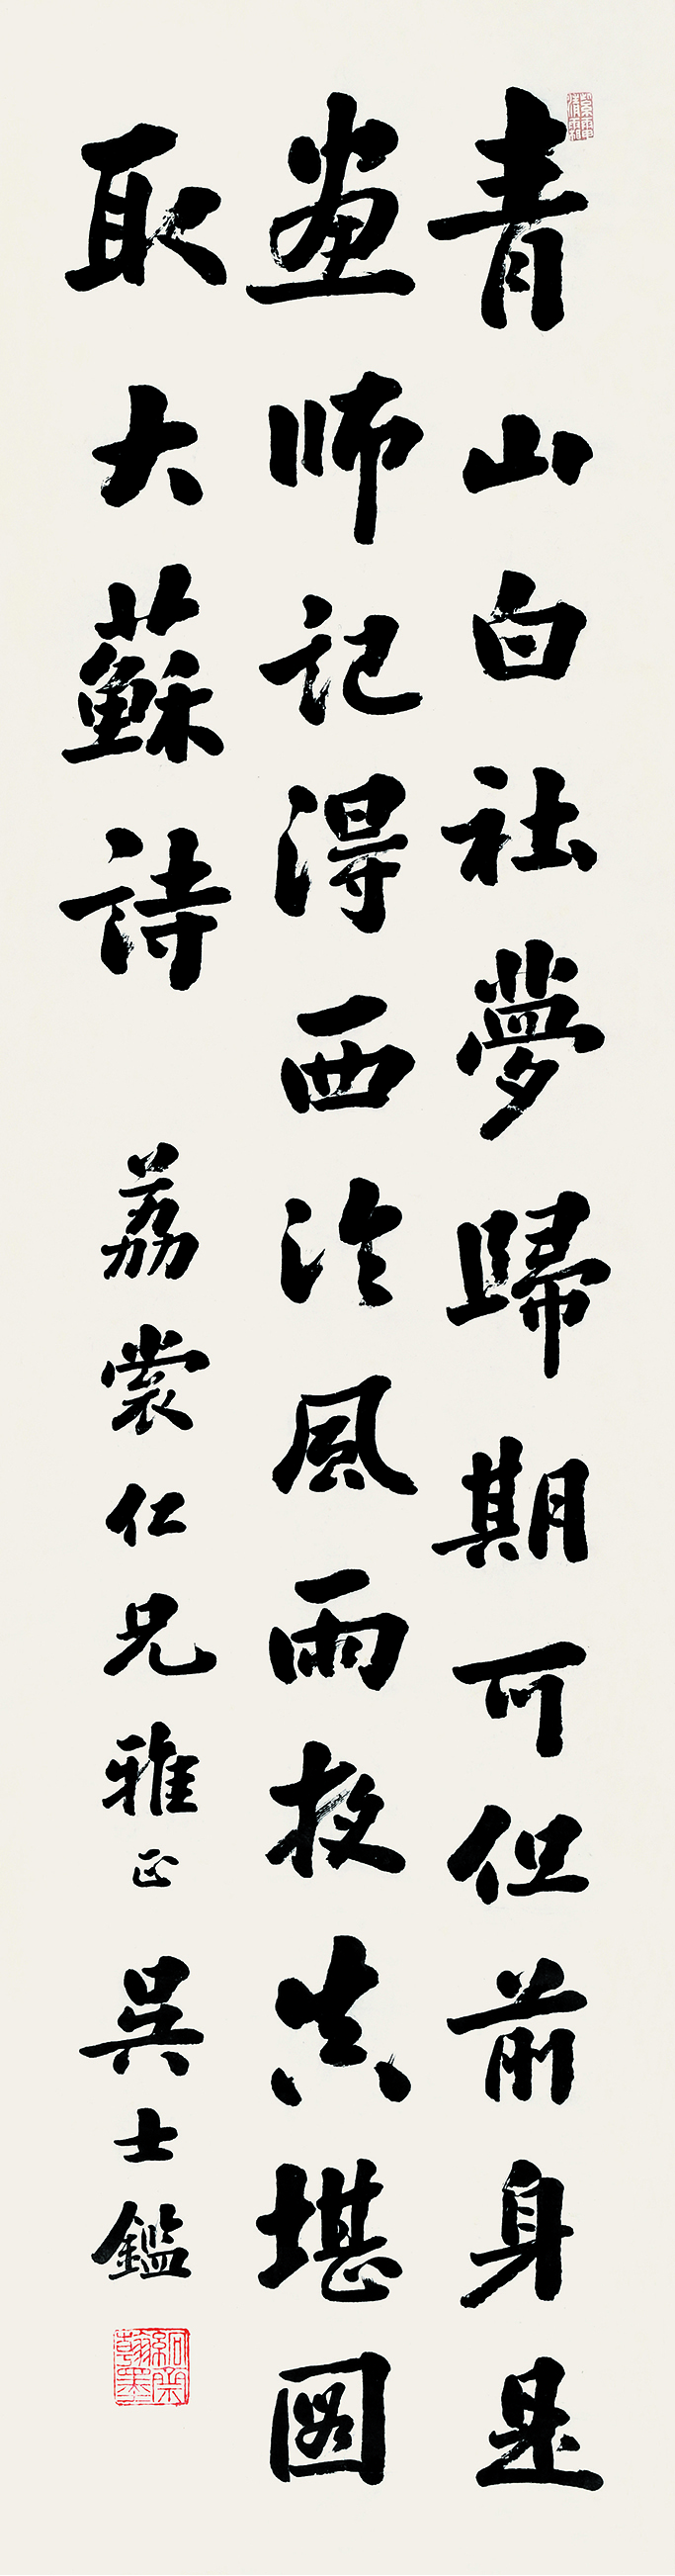 青山白社夢歸期可但前身是
畫師記得西泠風雨夜真堪圖
取大蘇詩 荔裳仁兄雅正 吳士鑑
絅齋翰墨